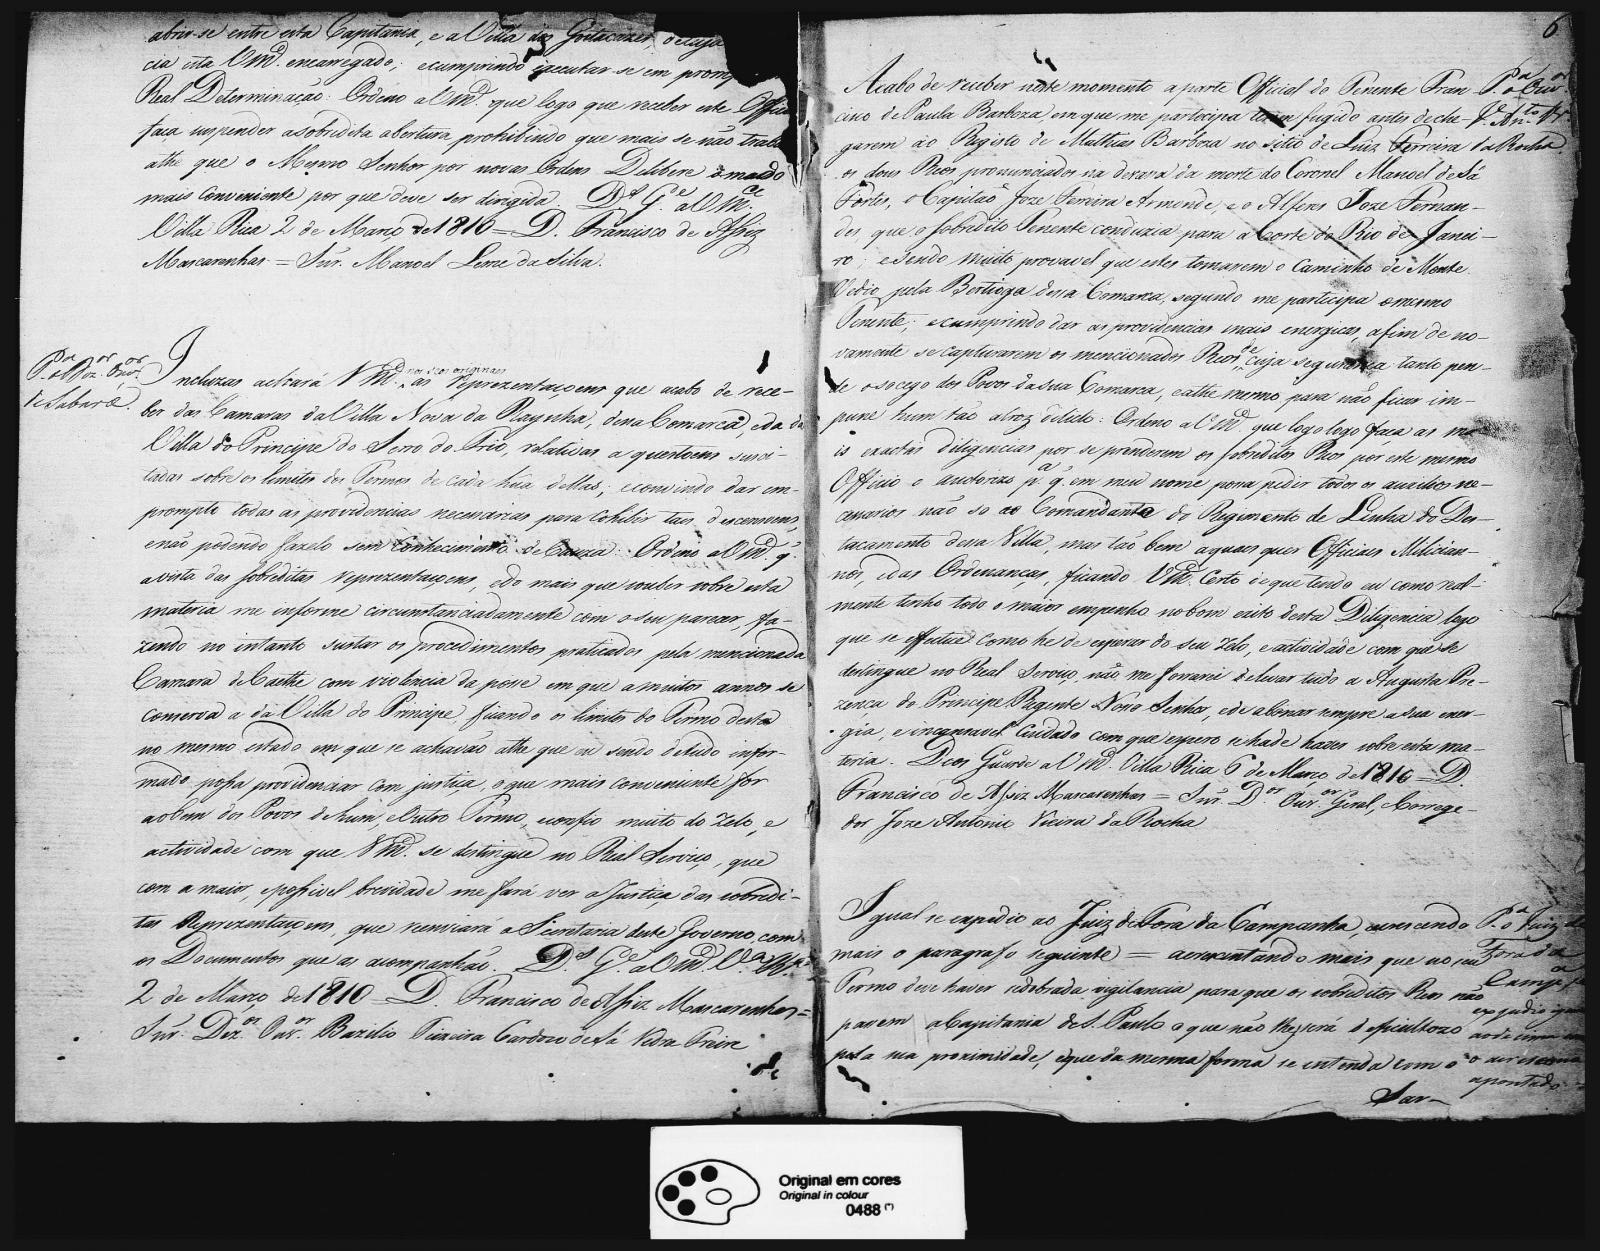 abrir-se entre esta Capitania, e a Villa dos Goitacazes, de cuja
cia esta Vm.ce encarregado; e cumprindo executar-se em promp
Real Determinação: Ordeno a Vm.ce que logo que receber este Offici
faça suspender a sobredita abertura prohibindo que mais se não traba
athe que o Mesmo Senhor por novas Ordens Delibere o modo
mais conveniente por que deve ser dirigida. D.s G.e a Vm.ce
Villa Rica 2 de Março de 1810 = D. Francisco de Assiz
Mascarenhas = Snr. Manoel Leme da Silva.
P.a o D.or Dez.or Ouv.or
de Sabará.
Incluzas achará Vm.ce nos seos originaes as reprezentaçoens que acabo de rece-
ber das Camaras da Villa Nova da Raynha, dessa Comarca, e da da
Villa do Principe do Serro do Frio, relativas a questoens susci-
tadas sobre os limites dos Termos de cada hua dellas; e convindo dar em-
prompto todas as providencias necessarias para cohibir taes descensoens,
e não podendo fazelo sem conhecimento de Cauza: Ordeno a Vm.ce q.'
a vista das sobreditas reprezentaçoens, e do mais que souber sobre esta
materia me informe circunstanciadamente com o seu parecer, fa-
zendo no intanto sustar os procedimentos praticados pela mencionada
Camara de Caethe com violencia da posse em que a muitos annos se
conserva a da Villa do Principe, ficando os limites do Termo desta
no mesmo estado em que se achavão athe que eu sendo de tudo infor-
mado possa providenciar com justiça, o que mais conveniente for
ao bem dos Povos de hum, e outro Termo, e confio muito do zelo, e
actividade com que Vm.ce se destingue no Real Serviço, que
com a maior, e possivel brevidade me fará ver a Justiça das sobredi-
tas Reprezentaçoens, que reenviará a Secretaria deste Governo, com
os Documentos que as acompanhão. D.s G.e a Vm.ce V.a R.a
2 de Março de 1810 = D. Francisco de Assiz Mascarenhas =
Snr. Dez.or Ouv.or Bazilio Teixeira Cardozo de Sá Vedra Freire
6
P.a o Ouv.or
J.e Ant.o V.a
da Rocha.
Acabo de receber neste momento a parte Official do Tenente Fran-
cisco de Paula Barboza em que me participa terem fugido antes de che-
garem ao Registo de Mathias Barboza no sitio de Luiz Ferreira
os dous Reos pronunciados na devaça da morte do Coronel Manoel de Sá
Fortes, o Capitão Joze Pereira Armonde, e o Alferes Joze Fernan-
des, que o sobredito Tenente conduzia para a Corte do Rio de Janei-
ro; e sendo muito provavel que estes tomarem o Caminho de Monte
Vedio pela Bertioga dessa Comarca, segundo me participa o mesmo
Tenente; e cumprindo dar as providencias mais energicas, a fim de no-
vamente se capturarem os mencionados Reos, de cuja segurança tanto pen-
de o socego dos Povos da sua Comarca, e athe mesmo para não ficar im-
pune hum tão atroz delicto: Ordeno a Vm.ce que logo logo faça as ma-
is exactas diligencias por se prenderem os sobreditos Reos por este mesmo
Officio o autorizo p.a q. em meu nome possa pedir todos os auxilios ne-
cessarios não so ao Comandante do Regimento de Linha do Des-
tacamento dessa Villa, mas tão bem a quaes quer Officiaes Milician-
nos, e das Ordenanças, ficando Vm.ce certo de que tendo eu como real-
mente tenho todo o maior empenho no bom exito desta Diligencia logo
que se effetue como he de esperar do seu zelo, e actividade com que se
destingue no Real Serviço, não me forrarei a levar tudo a Augusta Pre-
zença do Principe Regente Nosso Senhor, e de abonar sempre a sua ener-
gia, e incansavel Cuidado com que espero se hade haver sobre esta ma-
teria. Deos Guarde a Vm.ce Villa Rica 6 de Março de 1810 = D.
Francisco de Assiz Mascarenhas = Snr. D.or Ouv.or Geral, e Correge-
dor Joze Antonio Vieira da Rocha
P.a o Juiz de
Fora da
Campa.a
Igual se expedio ao Juiz de Fora da Campanha, acrescendo
mais o paragrafo seguinte = acrescentando mais que no seu
Termo deve haver redobrada vigilancia para que os sobreditos Reos não
passem a Capitania de S. Paulo o que não lhes será dificultozo
pela sua proximidade, e que da mesma forma se entenda com o
apontado
Sar-
Original em cores
Original in colour
0488 (*)